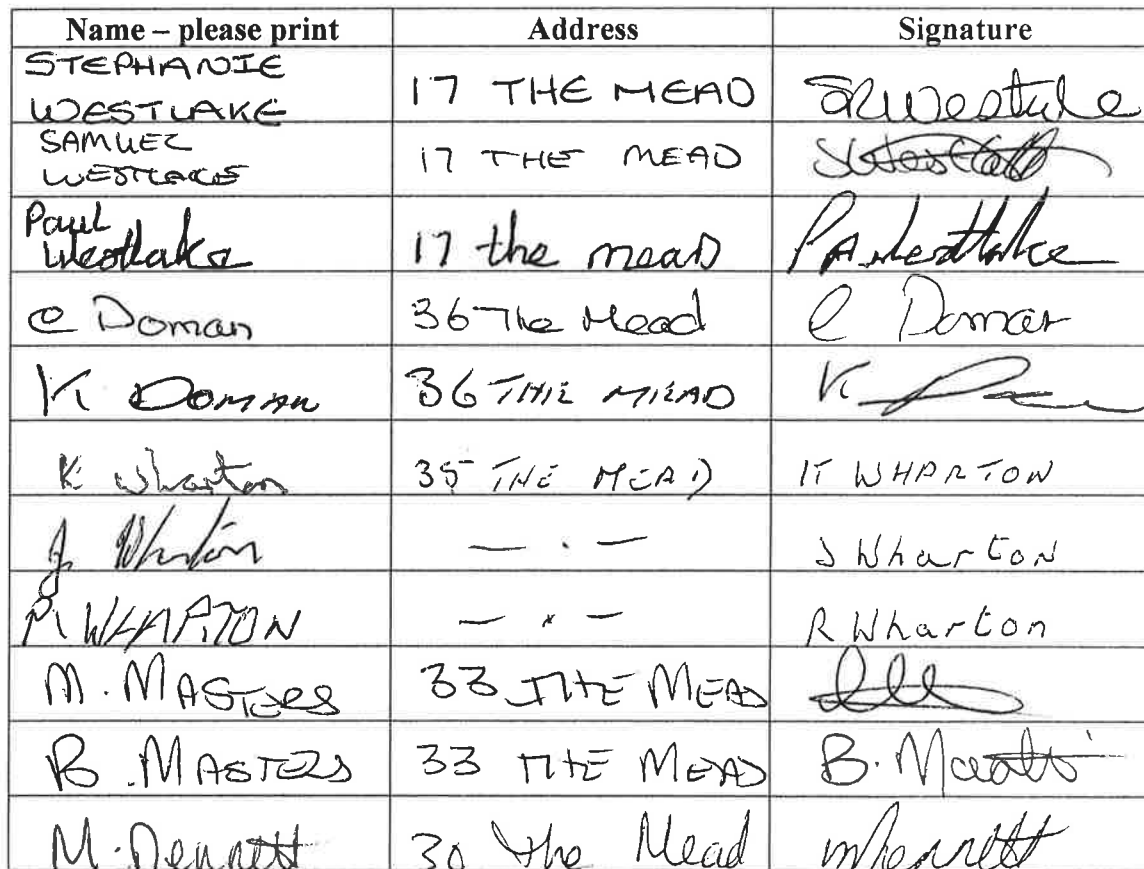 Name – please print Address Signature
STEPHANIE
WESTLAKE 17 THE MEAD SRWestlake
SAMUEL
WESTLAKE 17 THE MEAD
Paul
Westlake 17 the mead PAWestlake
C Doman 36 The Mead C Doman
K DOMAN 36 THE MEAD K
K Wharton 35 THE MEAD K WHARTON
J Wharton — . — J Wharton
R WHARTON — " — R Wharton
M. MASTERS 33 THE MEAD
B. MASTERS 33 THE MEAD B. Masters
M. Dennett 30 the Mead MDennett